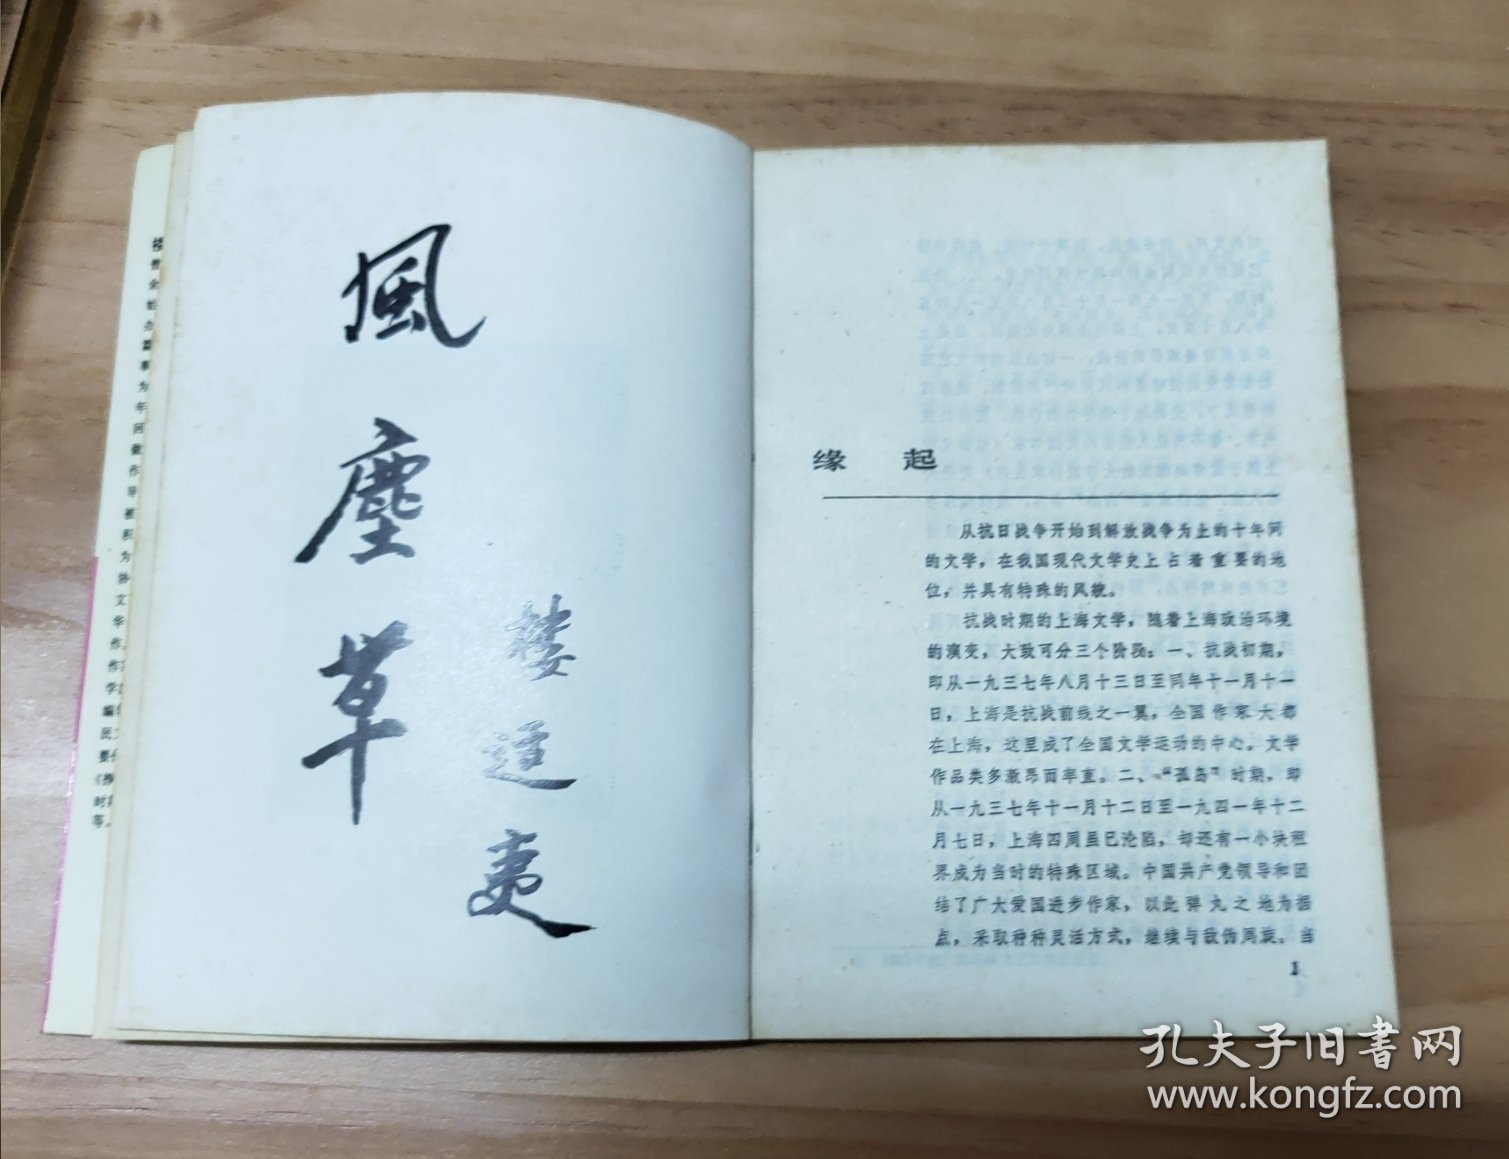 風塵草
楼适夷
缘 起
从抗日战争开始到解放战争为止的十年间
的文学，在我国现代文学史上占着重要的地
位，并具有特殊的风貌。
抗战时期的上海文学，随着上海政治环境
的演变，大致可分三个阶段：一、抗战初期，
即从一九三七年八月十三日至同年十一月十一
日，上海是抗战前线之一翼，全国作家大都
在上海，这里成了全国文学运动的中心。文学
作品类多激昂而率直。二、“孤岛”时期，即
从一九三七年十一月十二日至一九四一年十二
月七日，上海四周虽已沦陷，却还有一小块租
界成为当时的特殊区域。中国共产党领导和团
结了广大爱国进步作家，以此弹丸之地为据
点，采取种种灵活方式，继续与敌伪周旋。当
1
孔夫子旧書网
www.kongfz.com